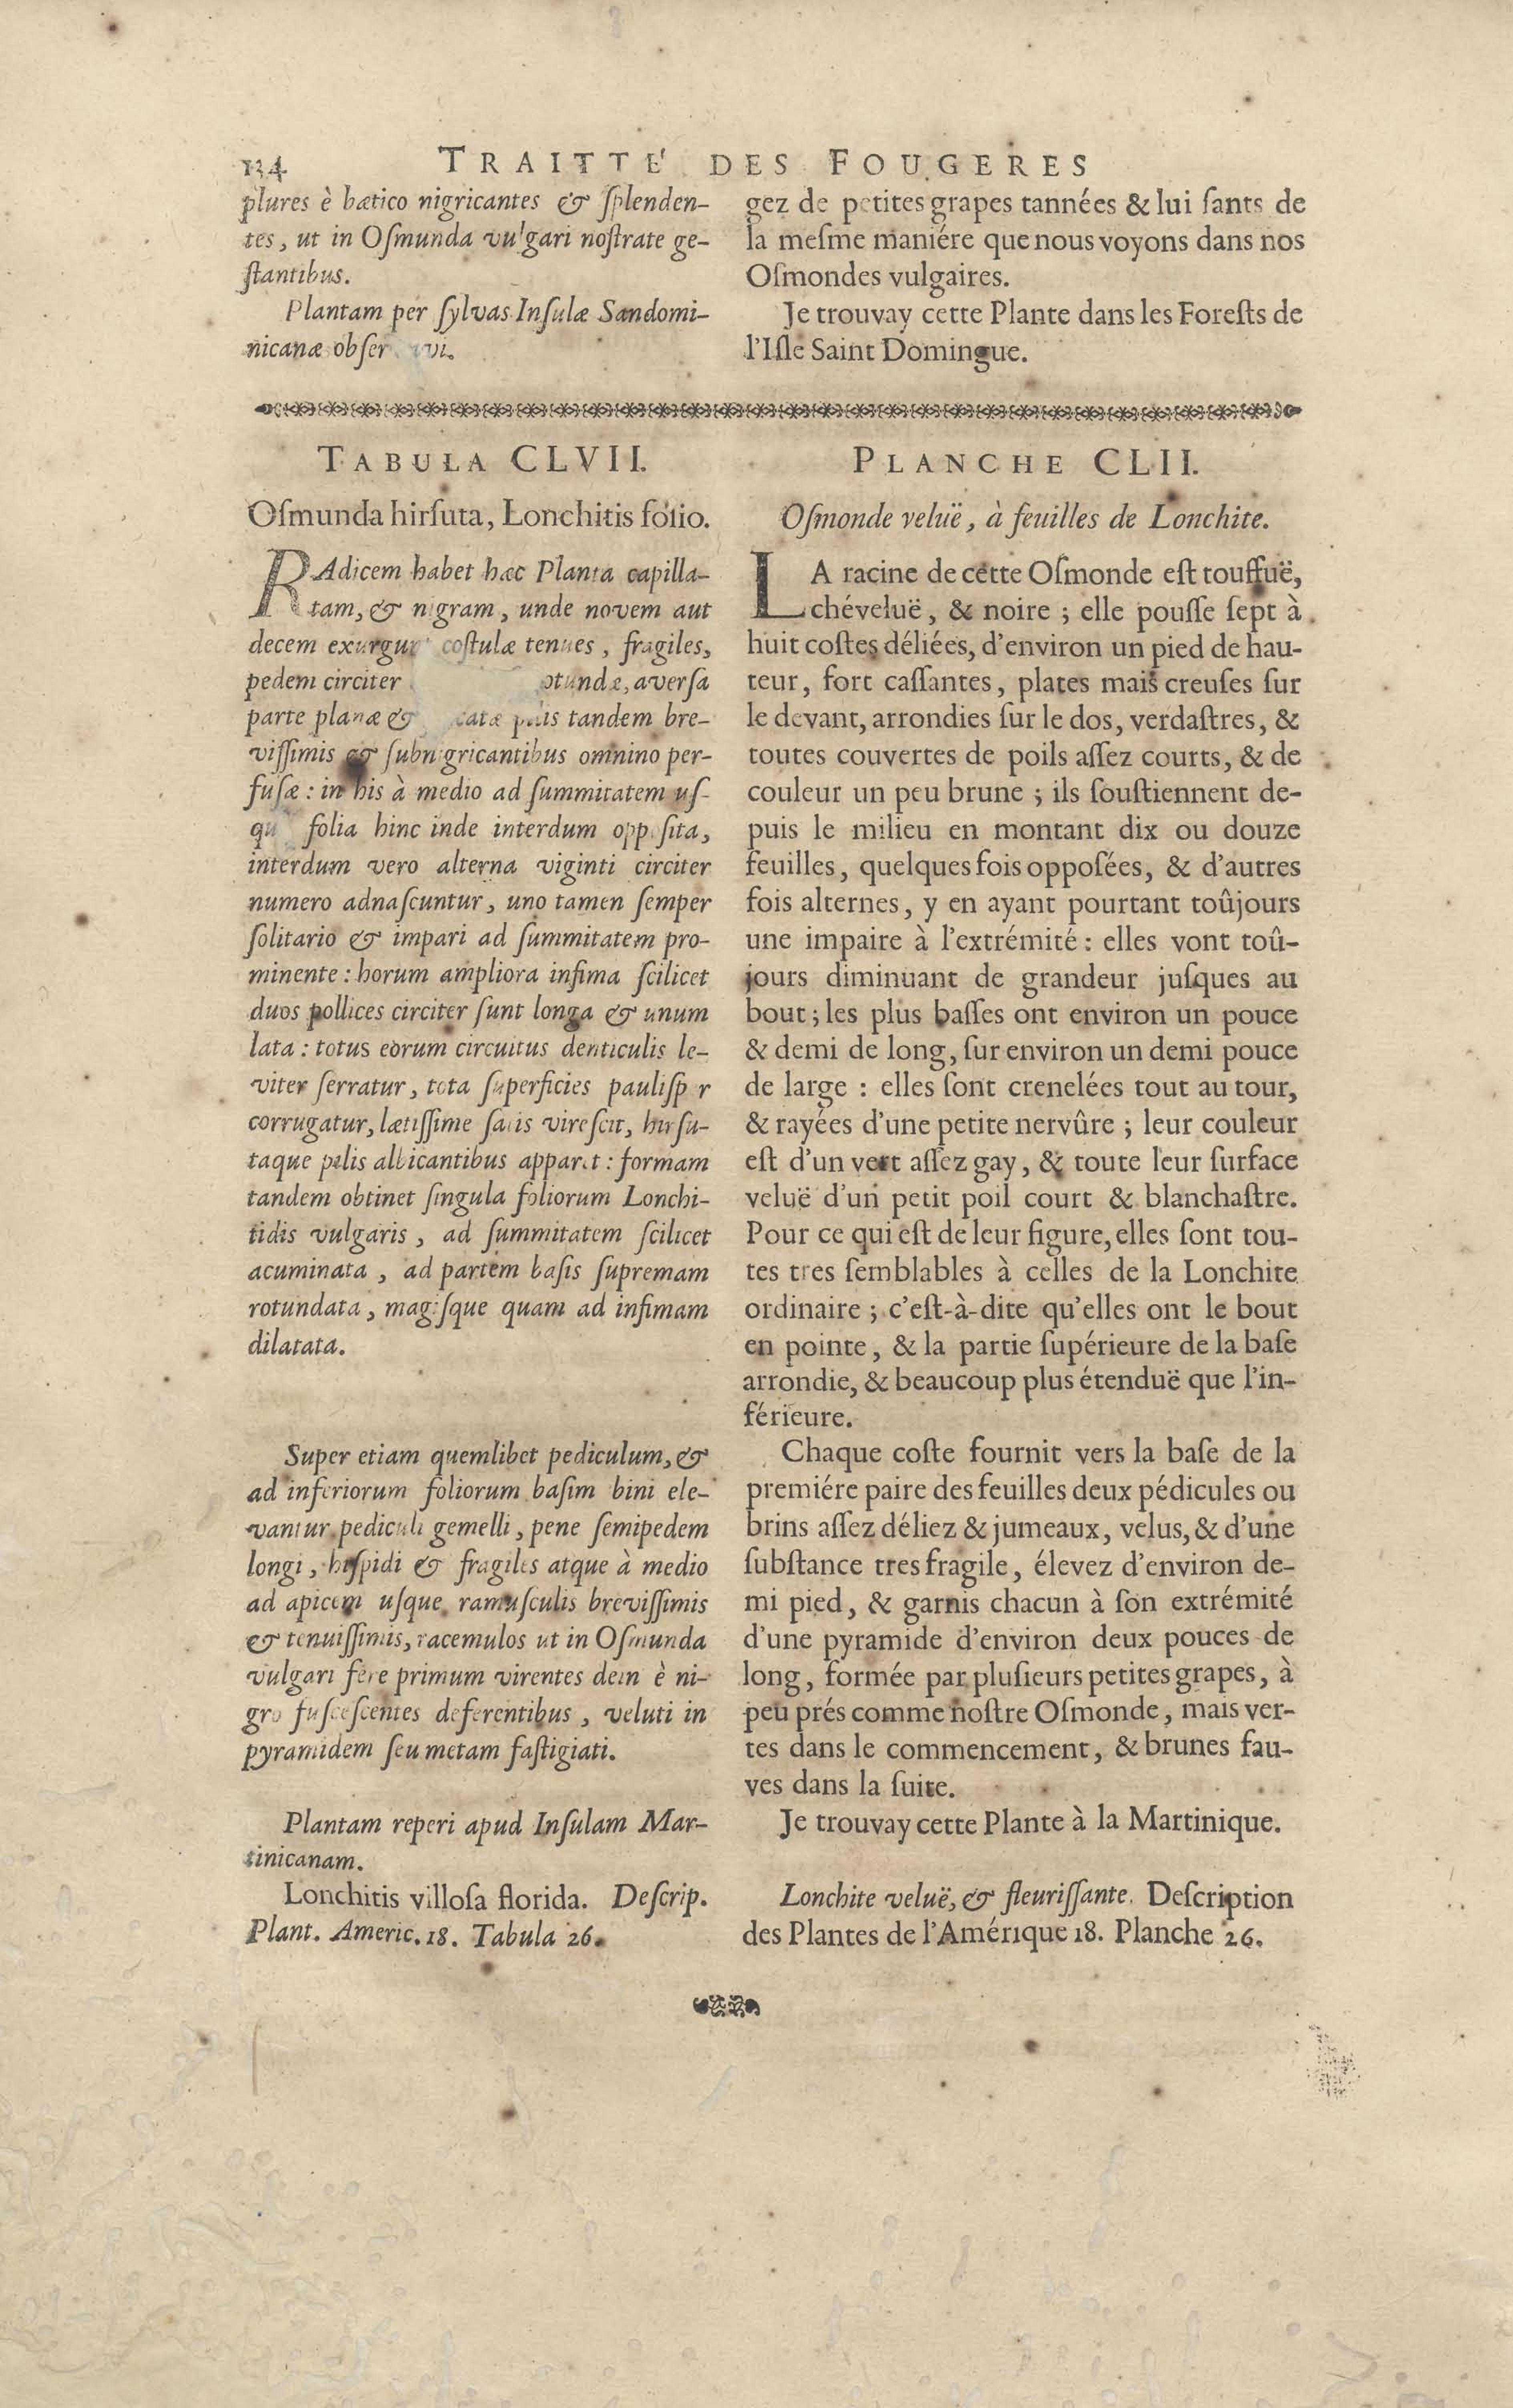 134 TRAITTE' DES FOUGERES
plures è bætico nigricantes & ſplenden-
tes, ut in Oſmunda vulgari noſtrate ge-
ſtantibus.
Plantam per ſylvas Inſulæ Sandomi-
nicanæ obſer vi.
gez de petites grapes tannées & lui ſants de
la meſme maniére que nous voyons dans nos
Oſmondes vulgaires.
Je trouvay cette Plante dans les Foreſts de
l'Iſle Saint Domingue.
TABULA CLVII.
Oſmunda hirſuta, Lonchitis folio.
RAdicem habet hæc Planta capilla-
tam, & nigram, unde novem aut
decem exurgu coſtulæ tenues, fragiles,
pedem circiter otundæ, averſa
parte planæ & catæ pilis tandem bre-
viſſimis & ſubnigricantibus omnino per-
fuſæ : in his à medio ad ſummitatem uſ-
qu folia hinc inde interdum oppoſita,
interdum vero alterna viginti circiter
numero adnaſcuntur, uno tamen ſemper
ſolitario & impari ad ſummitatem pro-
minente : horum ampliora infima ſcilicet
duos pollices circiter ſunt longa & unum
lata : totus eorum circuitus denticulis le-
viter ſerratur, tota ſuperficies pauliſp r
corrugatur, lætiſſime ſatis vireſcit, hirſu-
taque pilis albicantibus apparet : formam
tandem obtinet ſingula foliorum Lonchi-
tidis vulgaris, ad ſummitatem ſcilicet
acuminata, ad partem baſis ſupremam
rotundata, magiſque quam ad infimam
dilatata.
Super etiam quemlibet pediculum, &
ad inferiorum foliorum baſim bini ele-
vantur pediculi gemelli, pene ſemipedem
longi, hiſpidi & fragiles atque à medio
ad apicem uſque ramuſculis breviſſimis
& tenuiſſimis, racemulos ut in Oſmunda
vulgari fere primum virentes dein è ni-
gro fuſceſcentes deferentibus, veluti in
pyramidem ſeu metam faſtigiati.
Plantam reperi apud Inſulam Mar-
tinicanam.
Lonchitis villoſa florida. Deſcrip.
Plant. Americ. 18. Tabula 26.
PLANCHE CLII.
Oſmonde veluë, à feuilles de Lonchite.
LA racine de cette Oſmonde eſt touffuë,
chéveluë, & noire ; elle pouſſe ſept à
huit coſtes déliées, d'environ un pied de hau-
teur, fort caſſantes, plates mais creuſes ſur
le devant, arrondies ſur le dos, verdaſtres, &
toutes couvertes de poils aſſez courts, & de
couleur un peu brune ; ils ſouſtiennent de-
puis le milieu en montant dix ou douze
feuilles, quelques fois oppoſées, & d'autres
fois alternes, y en ayant pourtant toûjours
une impaire à l'extrémité : elles vont toû-
jours diminuant de grandeur juſques au
bout ; les plus baſſes ont environ un pouce
& demi de long, ſur environ un demi pouce
de large : elles ſont crenelées tout au tour,
& rayées d'une petite nervûre ; leur couleur
eſt d'un vert aſſez gay, & toute leur ſurface
veluë d'un petit poil court & blanchaſtre.
Pour ce qui eſt de leur figure, elles ſont tou-
tes tres ſemblables à celles de la Lonchite
ordinaire ; c'eſt-à-dite qu'elles ont le bout
en pointe, & la partie ſupérieure de la baſe
arrondie, & beaucoup plus étenduë que l'in-
férieure.
Chaque coſte fournit vers la baſe de la
premiére paire des feuilles deux pédicules ou
brins aſſez déliez & jumeaux, velus, & d'une
ſubſtance tres fragile, élevez d'environ de-
mi pied, & garnis chacun à ſon extrémité
d'une pyramide d'environ deux pouces de
long, formée par pluſieurs petites grapes, à
peu prés comme noſtre Oſmonde, mais ver-
tes dans le commencement, & brunes fau-
ves dans la ſuite.
Je trouvay cette Plante à la Martinique.
Lonchite veluë, & fleuriſſante. Deſcription
des Plantes de l'Amérique 18. Planche 26.